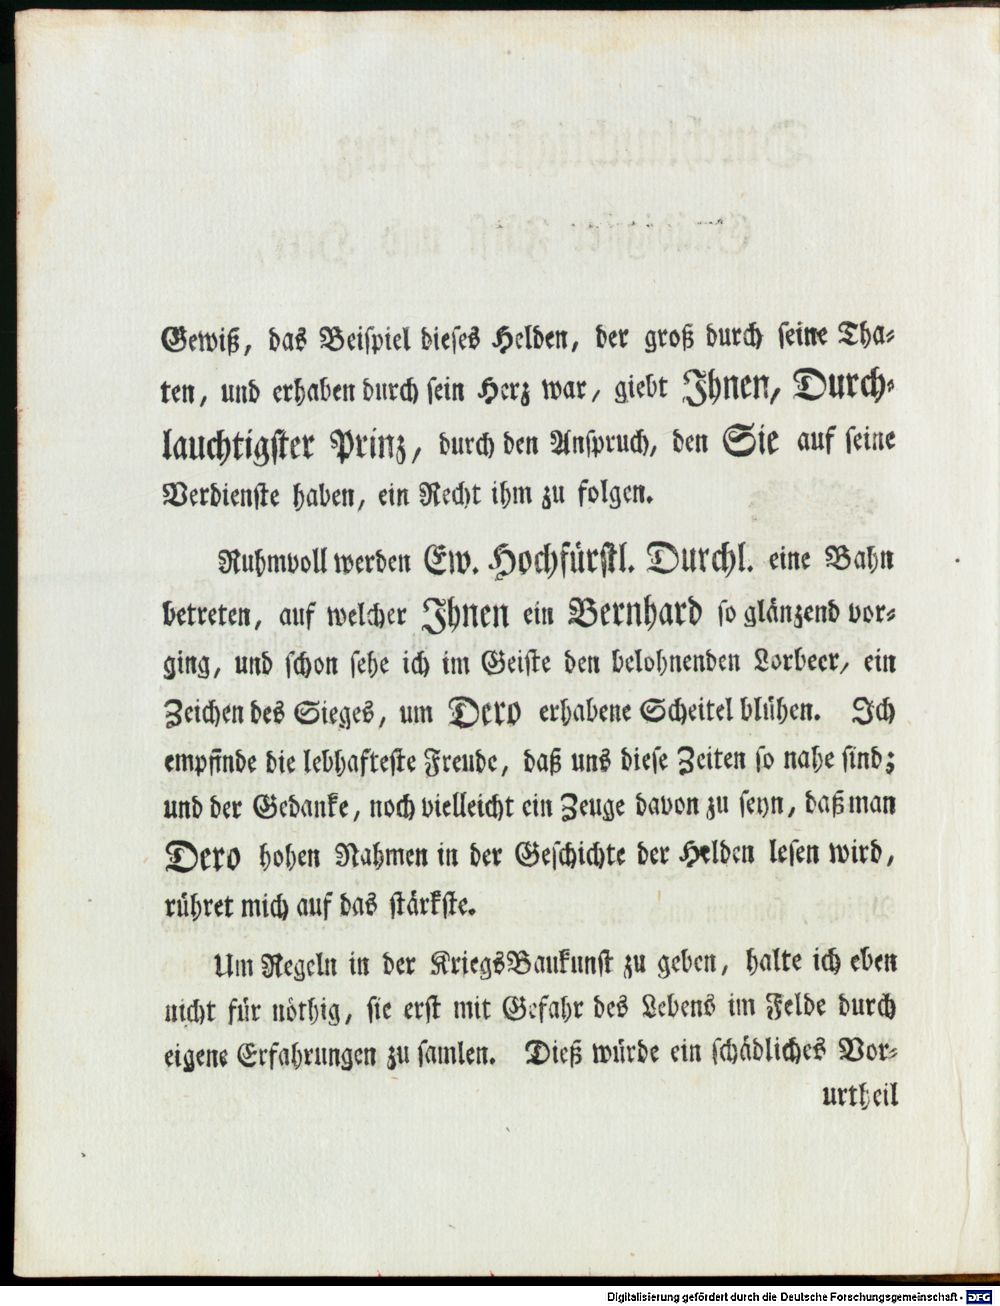 Gewiß, das Beispiel dieses Helden, der groß durch seine Tha-
ten, und erhaben durch sein Herz war, giebt Ihnen, Durch-
lauchtigster Prinz, durch den Anspruch, den Sie auf seine
Verdienste haben, ein Recht ihm zu folgen.
Ruhmvoll werden Ew. Hochfürstl. Durchl. eine Bahn
betreten, auf welcher Ihnen ein Bernhard so glänzend vor-
ging, und schon sehe ich im Geiste den belohnenden Lorbeer, ein
Zeichen des Sieges, um Dero erhabene Scheitel blühen. Ich
empfinde die lebhafteste Freude, daß uns diese Zeiten so nahe sind;
und der Gedanke, noch vielleicht ein Zeuge davon zu seyn, daß man
Dero hohen Nahmen in der Geschichte der Helden lesen wird,
rühret mich auf das stärkste.
Um Regeln in der KriegsBaukunst zu geben, halte ich eben
nicht für nöthig, sie erst mit Gefahr des Lebens im Felde durch
eigene Erfahrungen zu samlen. Dieß würde ein schädliches Vor-
urtheil
Digitalisierung gefördert durch die Deutsche Forschungsgemeinschaft - DFG